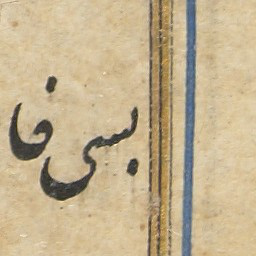 بسی فا